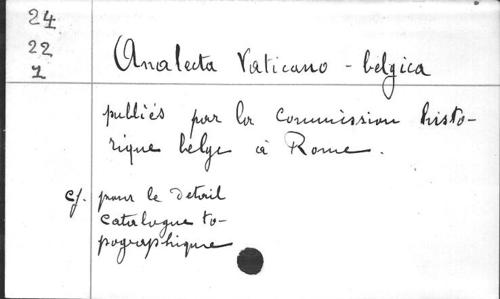 24
22
1
Analecta Vaticano - belgica
publiés par la Commission histo-
rique belge à Rome.
cf. pour le détail
catalogue to-
pographique